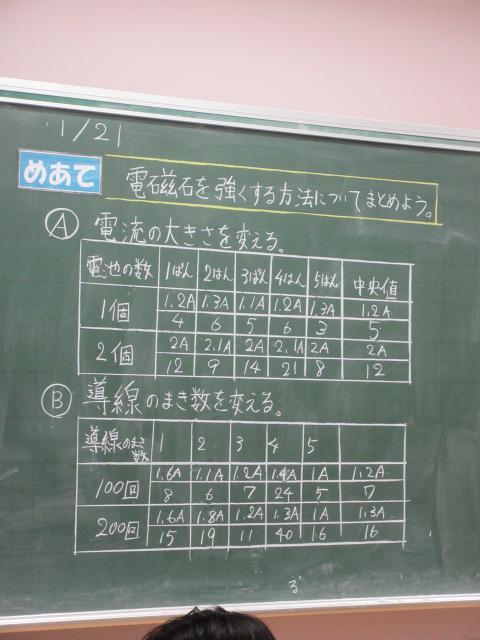 1/21
めあて 電磁石を強くする方法についてまとめよう。
Ⓐ 電流の大きさを変える。
電池の数 1ぱん 2はん 3ぱん 4はん 5はん 中央値
1個 1.2A 1.3A 1.1A 1.2A 1.3A 1.2A
4 6 5 6 3 5
2個 2A 2.1A 2A 2.1A 2A 2A
12 9 14 21 8 12
Ⓑ 導線のまき数を変える。
導線のまき数 1 2 3 4 5
100回 1.6A 1.1A 1.2A 1.4A 1A 1.2A
8 6 7 24 5 7
200回 1.6A 1.8A 1.2A 1.3A 1A 1.3A
15 19 11 40 16 16
る